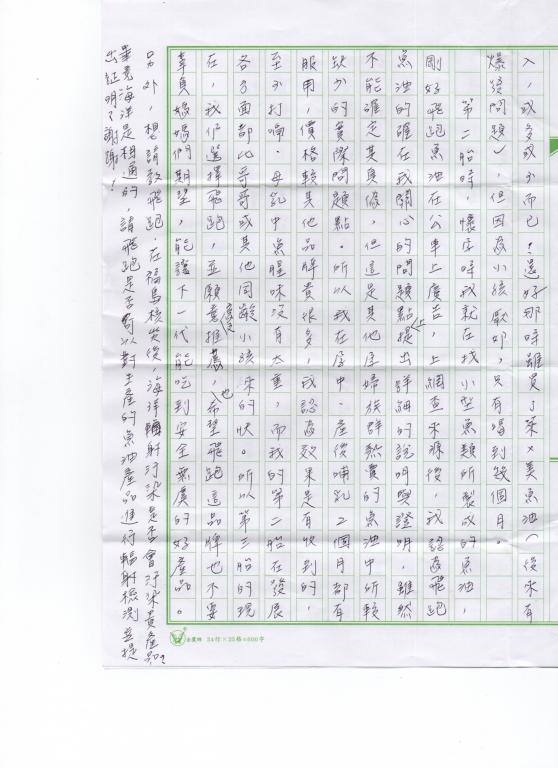 入，或多或少而已！還好那時雖買了萊×美魚油（後來有
爆發問題），但因為小孩歐邱，只有喝到幾個月。
第二胎時，懷孕時我就在找小型魚類所製成的魚油，
剛好飛跑魚油在公車上廣告，上網查來源後，我認為飛跑
魚油的確在我關心的問題點上提出詳細的說明與證明，雖然
不能確定其真偽，但這是其他孕婦族群熱賣的魚油中所較
缺少的實際問題點。所以我在孕中、產後哺乳2個月都有
服用，價格較其他品牌貴很多，或認為效果是有收到的，
至少打嗝、母乳中魚腥味沒有太重，而我的第二胎在發展
各方面都比哥哥或其他同齡小孩來的快。所以第三胎的現
在，我們選擇飛跑，並願意推薦，也希望飛跑這品牌也不要
辜負媽媽們期望，能讓下一代能吃到安全無虞的好產品。
另外，想請教飛跑，在福島核災後，海洋輻射汙染是否會汙染貴產品？
畢竟海洋是相通的，請飛跑是否可以對生產的魚油產品進行輻射檢測並提
出証明？謝謝！
24行×25格=600字